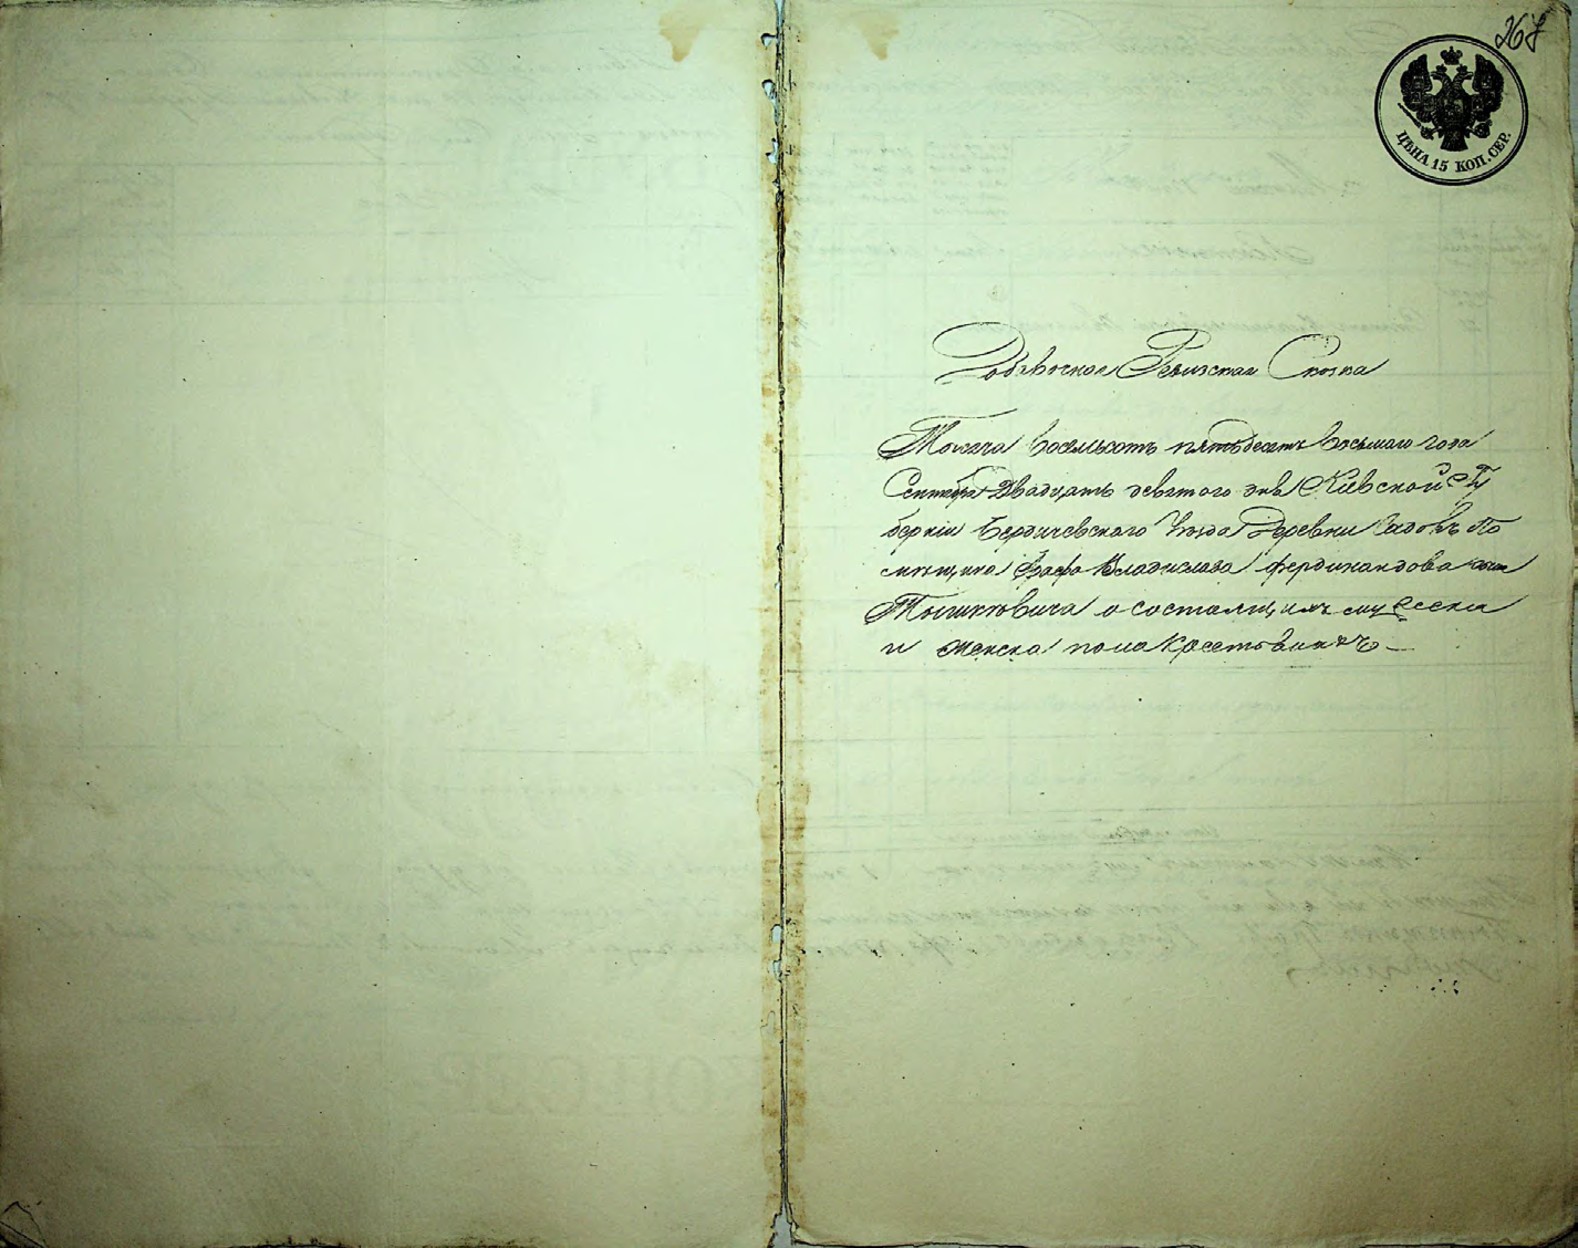 267
ЦѢНА 15 КОП. СЕР.
Добавочная Ревизская Сказка
Тысяча восемьсотъ пятьдесятъ восьмаго года
Сентября двадцать девятого дня Кіевской Гу
берніи Бердичевскаго Уѣзда Деревни Садовъ По
мѣщика Графа Владислава Фердинандова сына
Тышкевича о состоящихъ мужеска
и женска пола крестьянахъ